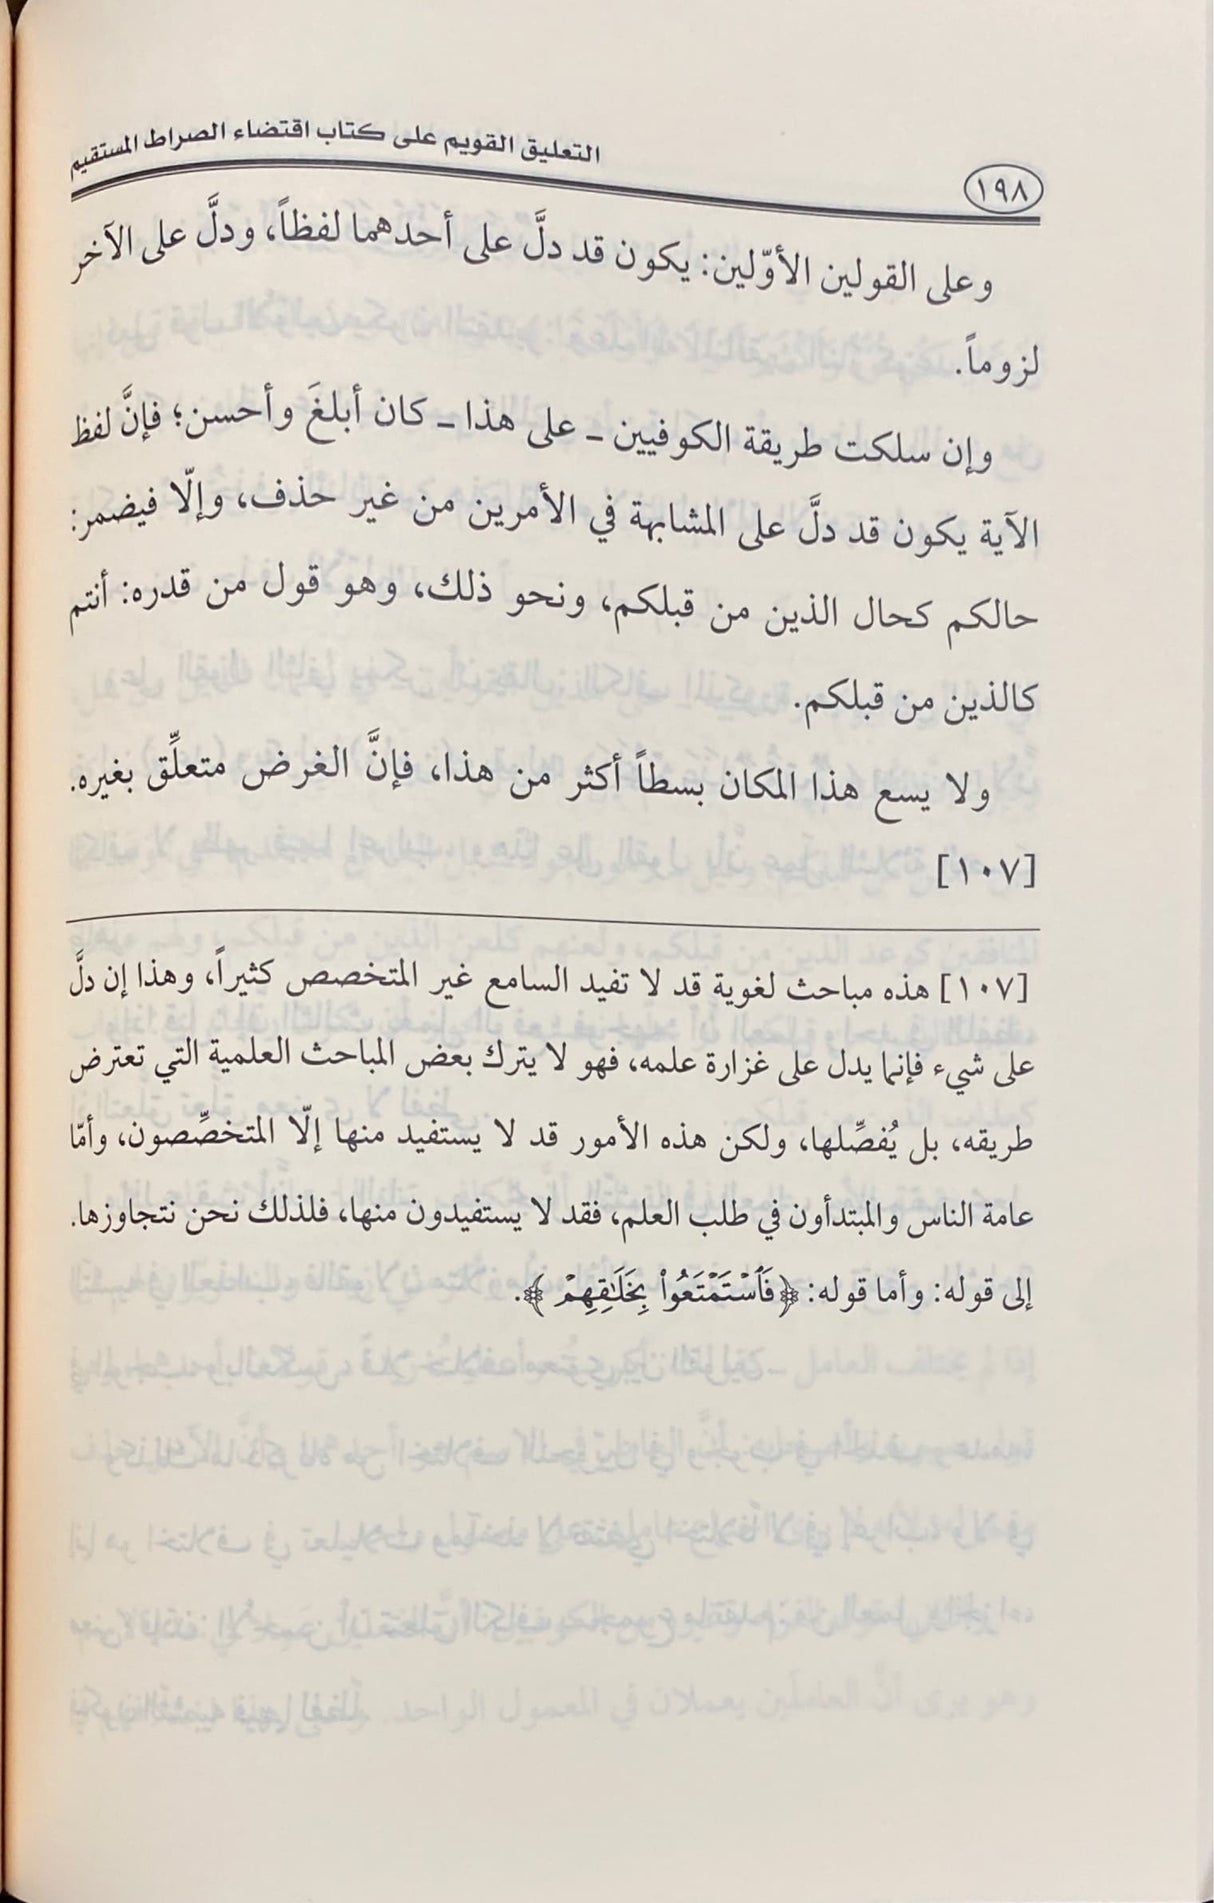 التعليق القويم على كتاب اقتضاء الصراط المستقيم
١٩٨
وعلى القولين الأوّلين: يكون قد دلَّ على أحدهما لفظاً، ودلَّ على الآخر
لزوماً.
وإن سلكت طريقة الكوفيين ـ على هذا ـ كان أبلغَ وأحسن؛ فإنَّ لفظ
الآية يكون قد دلَّ على المشابهة في الأمرين من غير حذف، وإلّا فيضمر:
حالكم كحال الذين من قبلكم، ونحو ذلك، وهو قول من قدره: أنتم
كالذين من قبلكم.
ولا يسع هذا المكان بسطاً أكثر من هذا، فإنَّ الغرض متعلِّق بغيره.
[١٠٧]
[١٠٧] هذه مباحث لغوية قد لا تفيد السامع غير المتخصص كثيراً، وهذا إن دلَّ
على شيء فإنما يدل على غزارة علمه، فهو لا يترك بعض المباحث العلمية التي تعترض
طريقه، بل يُفصِّلها، ولكن هذه الأمور قد لا يستفيد منها إلّا المتخصِّصون، وأمّا
عامة الناس والمبتدأون في طلب العلم، فقد لا يستفيدون منها، فلذلك نحن نتجاوزها.
إلى قوله: وأما قوله: ﴿فَٱسۡتَمۡتَعُواْ بِخَلَٰقِهِمۡ﴾.